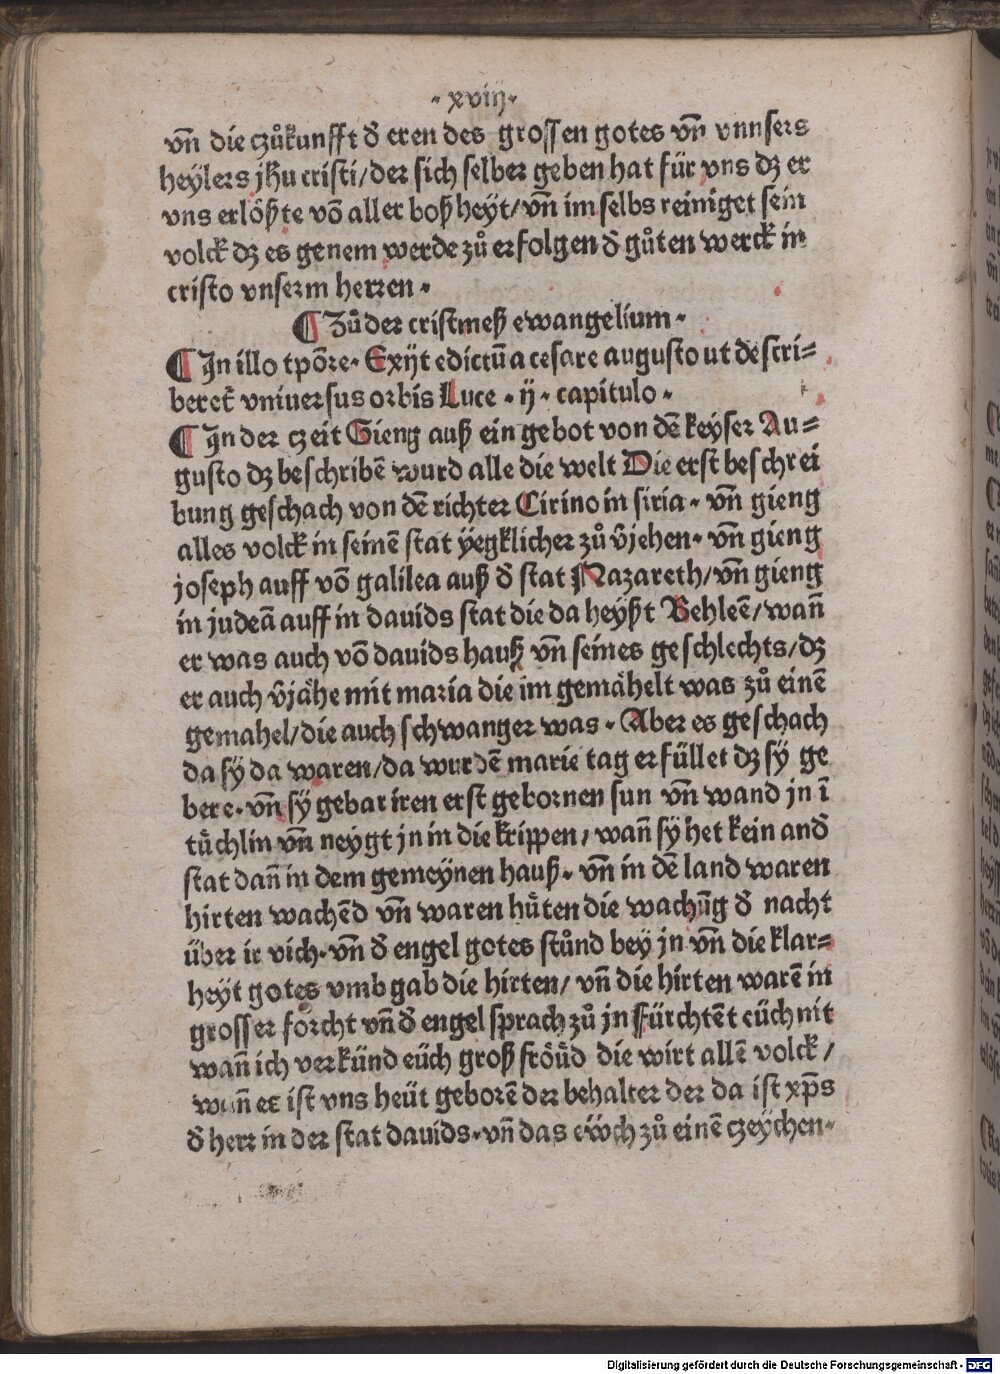 · xviij ·
vn̄ die czůkunfft d̕ eren des grossen gotes vn̄ vnnsers
heÿlers jh̄u cristi/der sich selber geben hat für vns dz er
vns erlößte vō aller boßheÿt/vn̄ im selbs reiniget sein
volck dz es genem werde zů erfolgen d̕ gůten werck in
cristo vnserm herren ·
¶ Zů der cristmeß ewangelium ·
¶ In illo tp̄ore · Exijt edictū a cesare augusto ut descri=
beret᷑ vniuersus orbis Luce · ij · capitulo ·
¶ In der czeit Gieng auß ein gebot von dē keyser Au=
gusto dz beschribē wurd alle die welt Die erst beschrei
bung geschach von dē richter Cirino in siria · vn̄ gieng
alles volck in seinē stat ÿegklicher zů v̄jehen · vn̄ gieng
joseph auff vō galilea auß d̕ stat Nazareth/vn̄ gieng
in judeā auff in dauids stat die da heyßt Behleē/wan̄
er was auch vō dauids hauß vn̄ seines geschlechts/dz
er auch v̄jähe mit maria die im gemähelt was zů einē
gemahel/die auch schwanger was · Aber es geschach
da sÿ da waren/da wurdē marie tag erfüllet dz sÿ ge
bere · vn̄ sÿ gebar iren erst gebornen sun vn̄ wand jn ī
tüchlin vn̄ neygt jn in die krippen/wan̄ sÿ het kein and̕
stat dan̄ in dem gemeÿnen hauß · vn̄ in dē land waren
hirten wachēd vn̄ waren hüten die wachūg d̕ nacht
über ir vich · vn̄ d̕ engel gotes stůnd beÿ jn vn̄ die klar=
heÿt gotes vmbgab die hirten/ vn̄ die hirten warē in
grosser forcht vn̄ d̕ engel sprach zů jn Fürchtēt eüch nit
wan̄ ich verkünd eüch groß fröüd die wirt allē volck /
wan̄ er ist vns heüt geborē der behalter der da ist xp̄s
d̕ herr in der stat dauids · vn̄ das eẅch zů einē czeÿchen ·
Digitalisierung gefördert durch die Deutsche Forschungsgemeinschaft - DFG